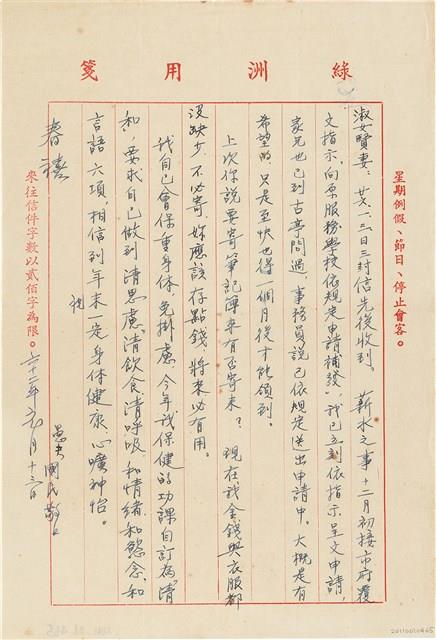 綠洲用箋
星期例假、節日、停止會客。
淑女賢妻：廿八、一、三日三封信先後收到。 薪水之事十二月初接市府覆
文指示，向原服務學校依規定申請補發，我已立刻依指示呈文申請，
家兄也已到古亭問過，事務員說已依規定送出申請中。大概是有
希望的，只是至快也得一個月後才能領到。
上次你說要寄筆記簿來有否寄來？ 現在我金錢與衣服都
沒缺少，不必寄，妳應該存點錢，將來必有用。
我自己會保重身体，免掛慮，今年我保健的功課自訂為清
和，要求自己做到清思慮、清飲食、清呼吸、和情緒、和慾念、和
言語六項，相信到年末一定身体健康，心曠神怡。
祝
春禧
愚夫 國民 敬上
六十二年元月十三日
來往信件字數以貳佰字為限。